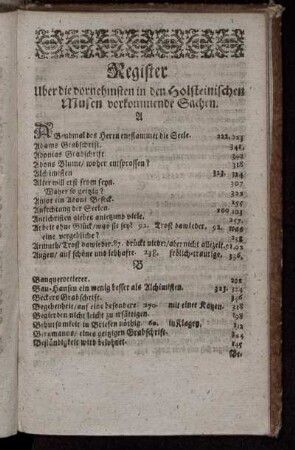 Register
Uber die vornehmsten in den Holsteinischen
Musen vorkommende Sachen.
A
Abendmal des Herrn entflammet die Seele. 222, 223
Adams Grabschrift. 341.
Adonias Grabschrift 342
Adons Blum/ woher entsprossen? 318
Alchimisten 323. 324
Alter will erst from seyn. 307
Warum so geitzig? 322
Amor ein Adoni Besteck. 255
Anfechtung der Seelen. 100 103
Antichristum glieben 257.
Arbeit ohn Glück/ was sie sey? 92. Trost dawieder. 92.
eine vergebliche? 238
Armuth/ Trost dawieder. 87. drückt wieder/ aber nicht allezeit.
Augen/ auf schöne und lebhafte. 238. frölich-traurige. 336.
B
Banquerottierer.
Bau-Hansen ein wenig besser als Alchimisten. 323. 324
Beckers Grabschrift. 346
Begebenheit/ auf eine besonders 290. mit einer Katzen. 318
Begierden nicht leicht zu ersättigen. 108
Behutsamkeit in Briefen nöthig. 60. in Klagen. 144
Bergmanns/ eines geitzigen Grabschrift. 344.
Beständigkeit wird belohnet. 145
Be-